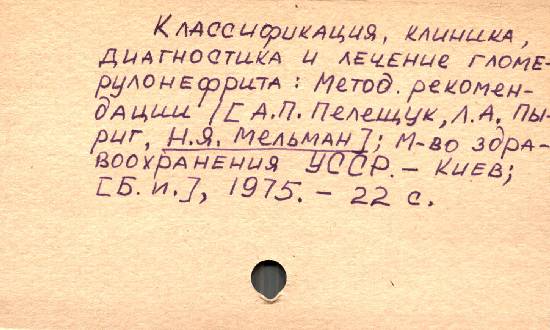 Классификация, клиника,
диагностика и лечение гломе-
рулонефрита: Метод. рекомен-
дации / [А.П. Пелещук, Л.А. Пы-
риг, Н.Я. Мельман]; М-во здра-
воохранения УССР. – Киев;
[Б. и.], 1975. – 22 с.